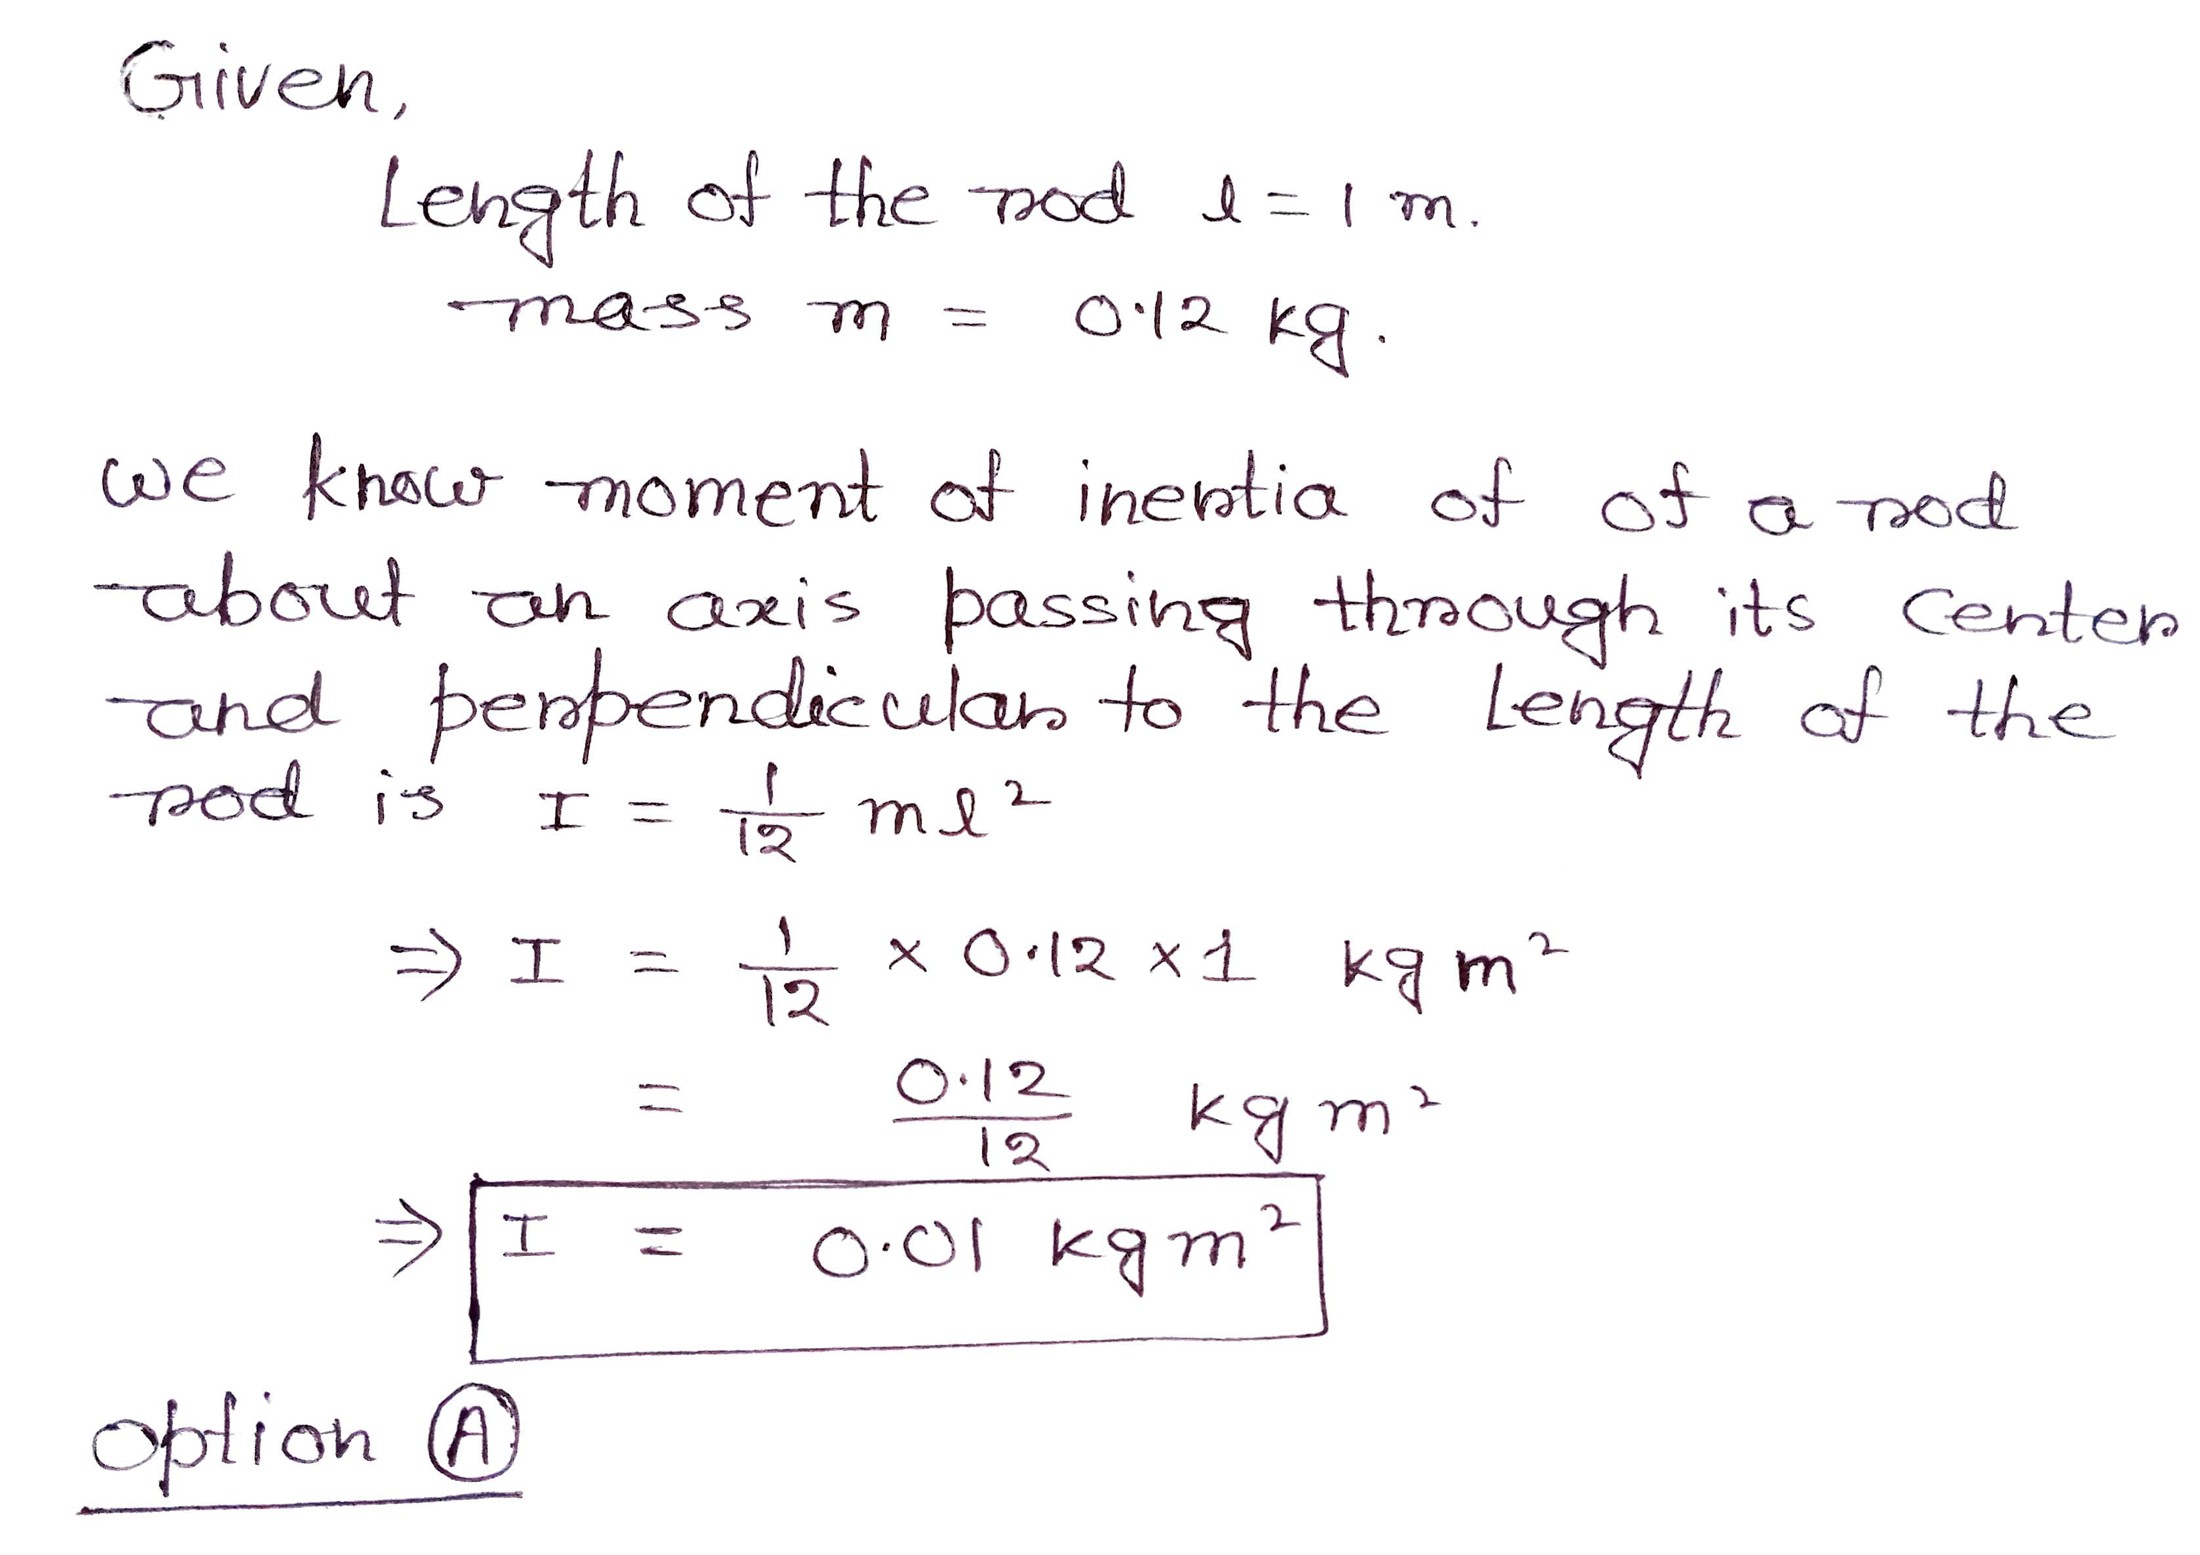 Given,
Length of the rod l = 1 m.
mass m = 0.12 kg.
we know moment of inertia of of a rod
about an axis passing through its center
and perpendicular to the Length of the
rod is I = 1/12 ml²
⇒ I = 1/12 × 0.12 × 1 kg m²
= 0.12/12 kg m²
⇒ I = 0.01 kg m²
option Ⓐ